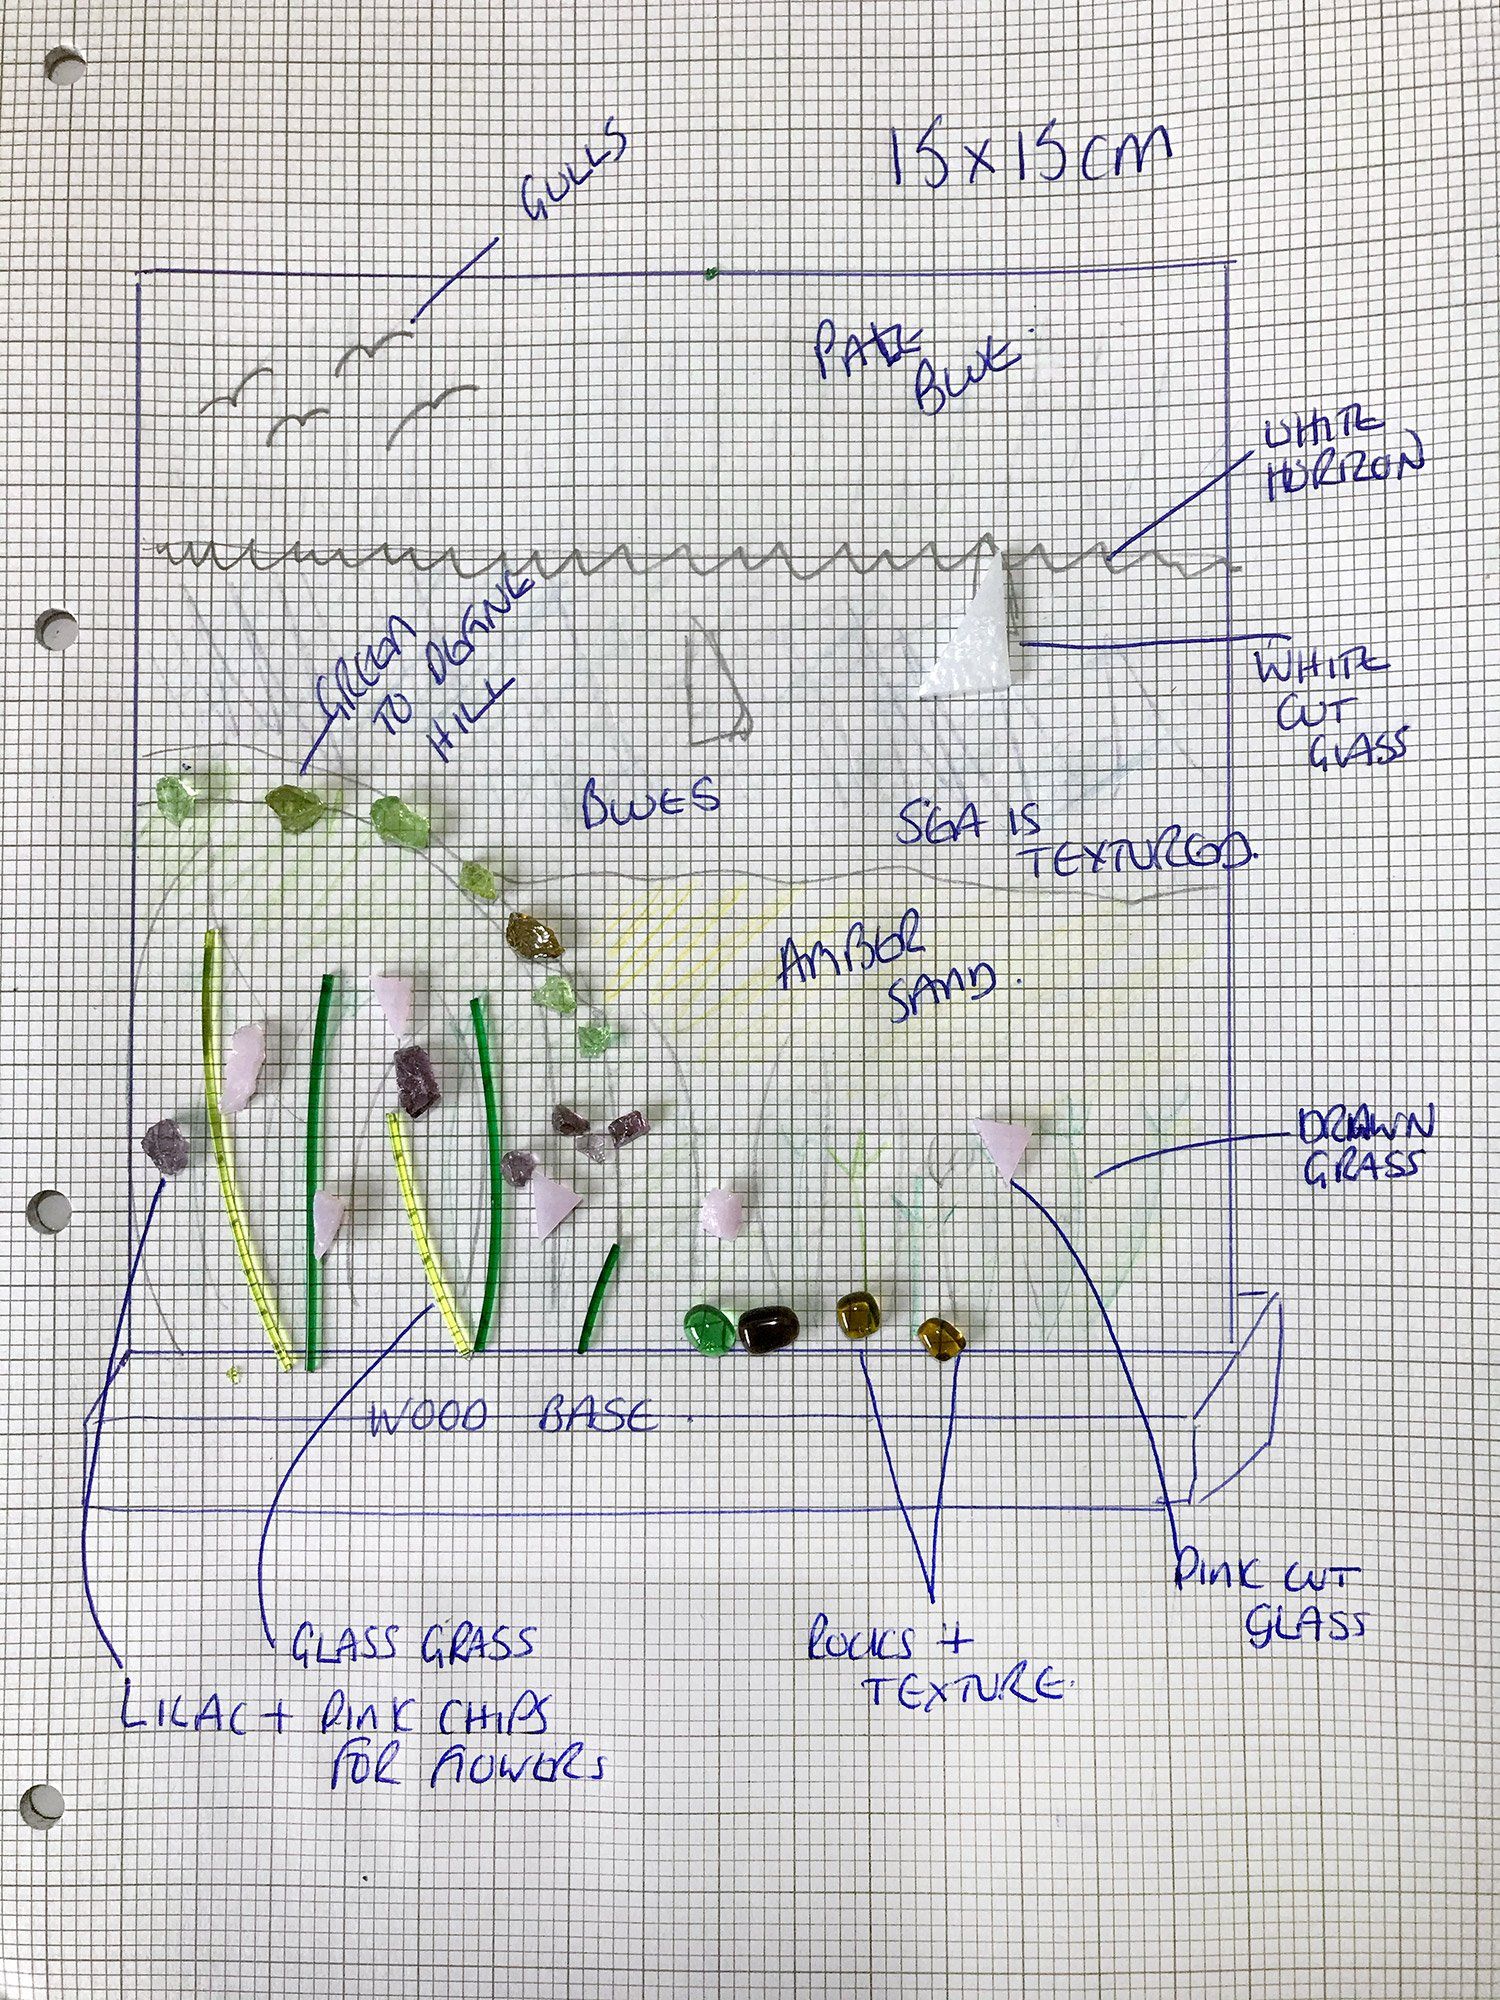 15 x 15 CM
GULLS
PALE
BLUE
WHITE
HORIZON
GREEN
TO DEFINE
HILL
WHITE
CUT
GLASS
BLUES
SEA IS
TEXTURED.
AMBER
SAND.
DRAWN
GRASS
WOOD BASE.
PINK CUT
GLASS
GLASS GRASS
ROCKS +
TEXTURE.
LILAC + PINK CHIPS
FOR FLOWERS